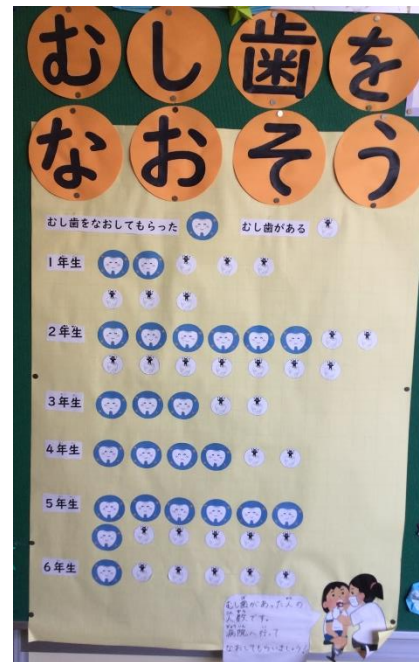 むし歯を
なおそう
むし歯をなおしてもらった むし歯がある
1年生
2年生
3年生
4年生
5年生
6年生
むし歯があった人の
人数です。
病院へ行って
なおしてもらいましょう！